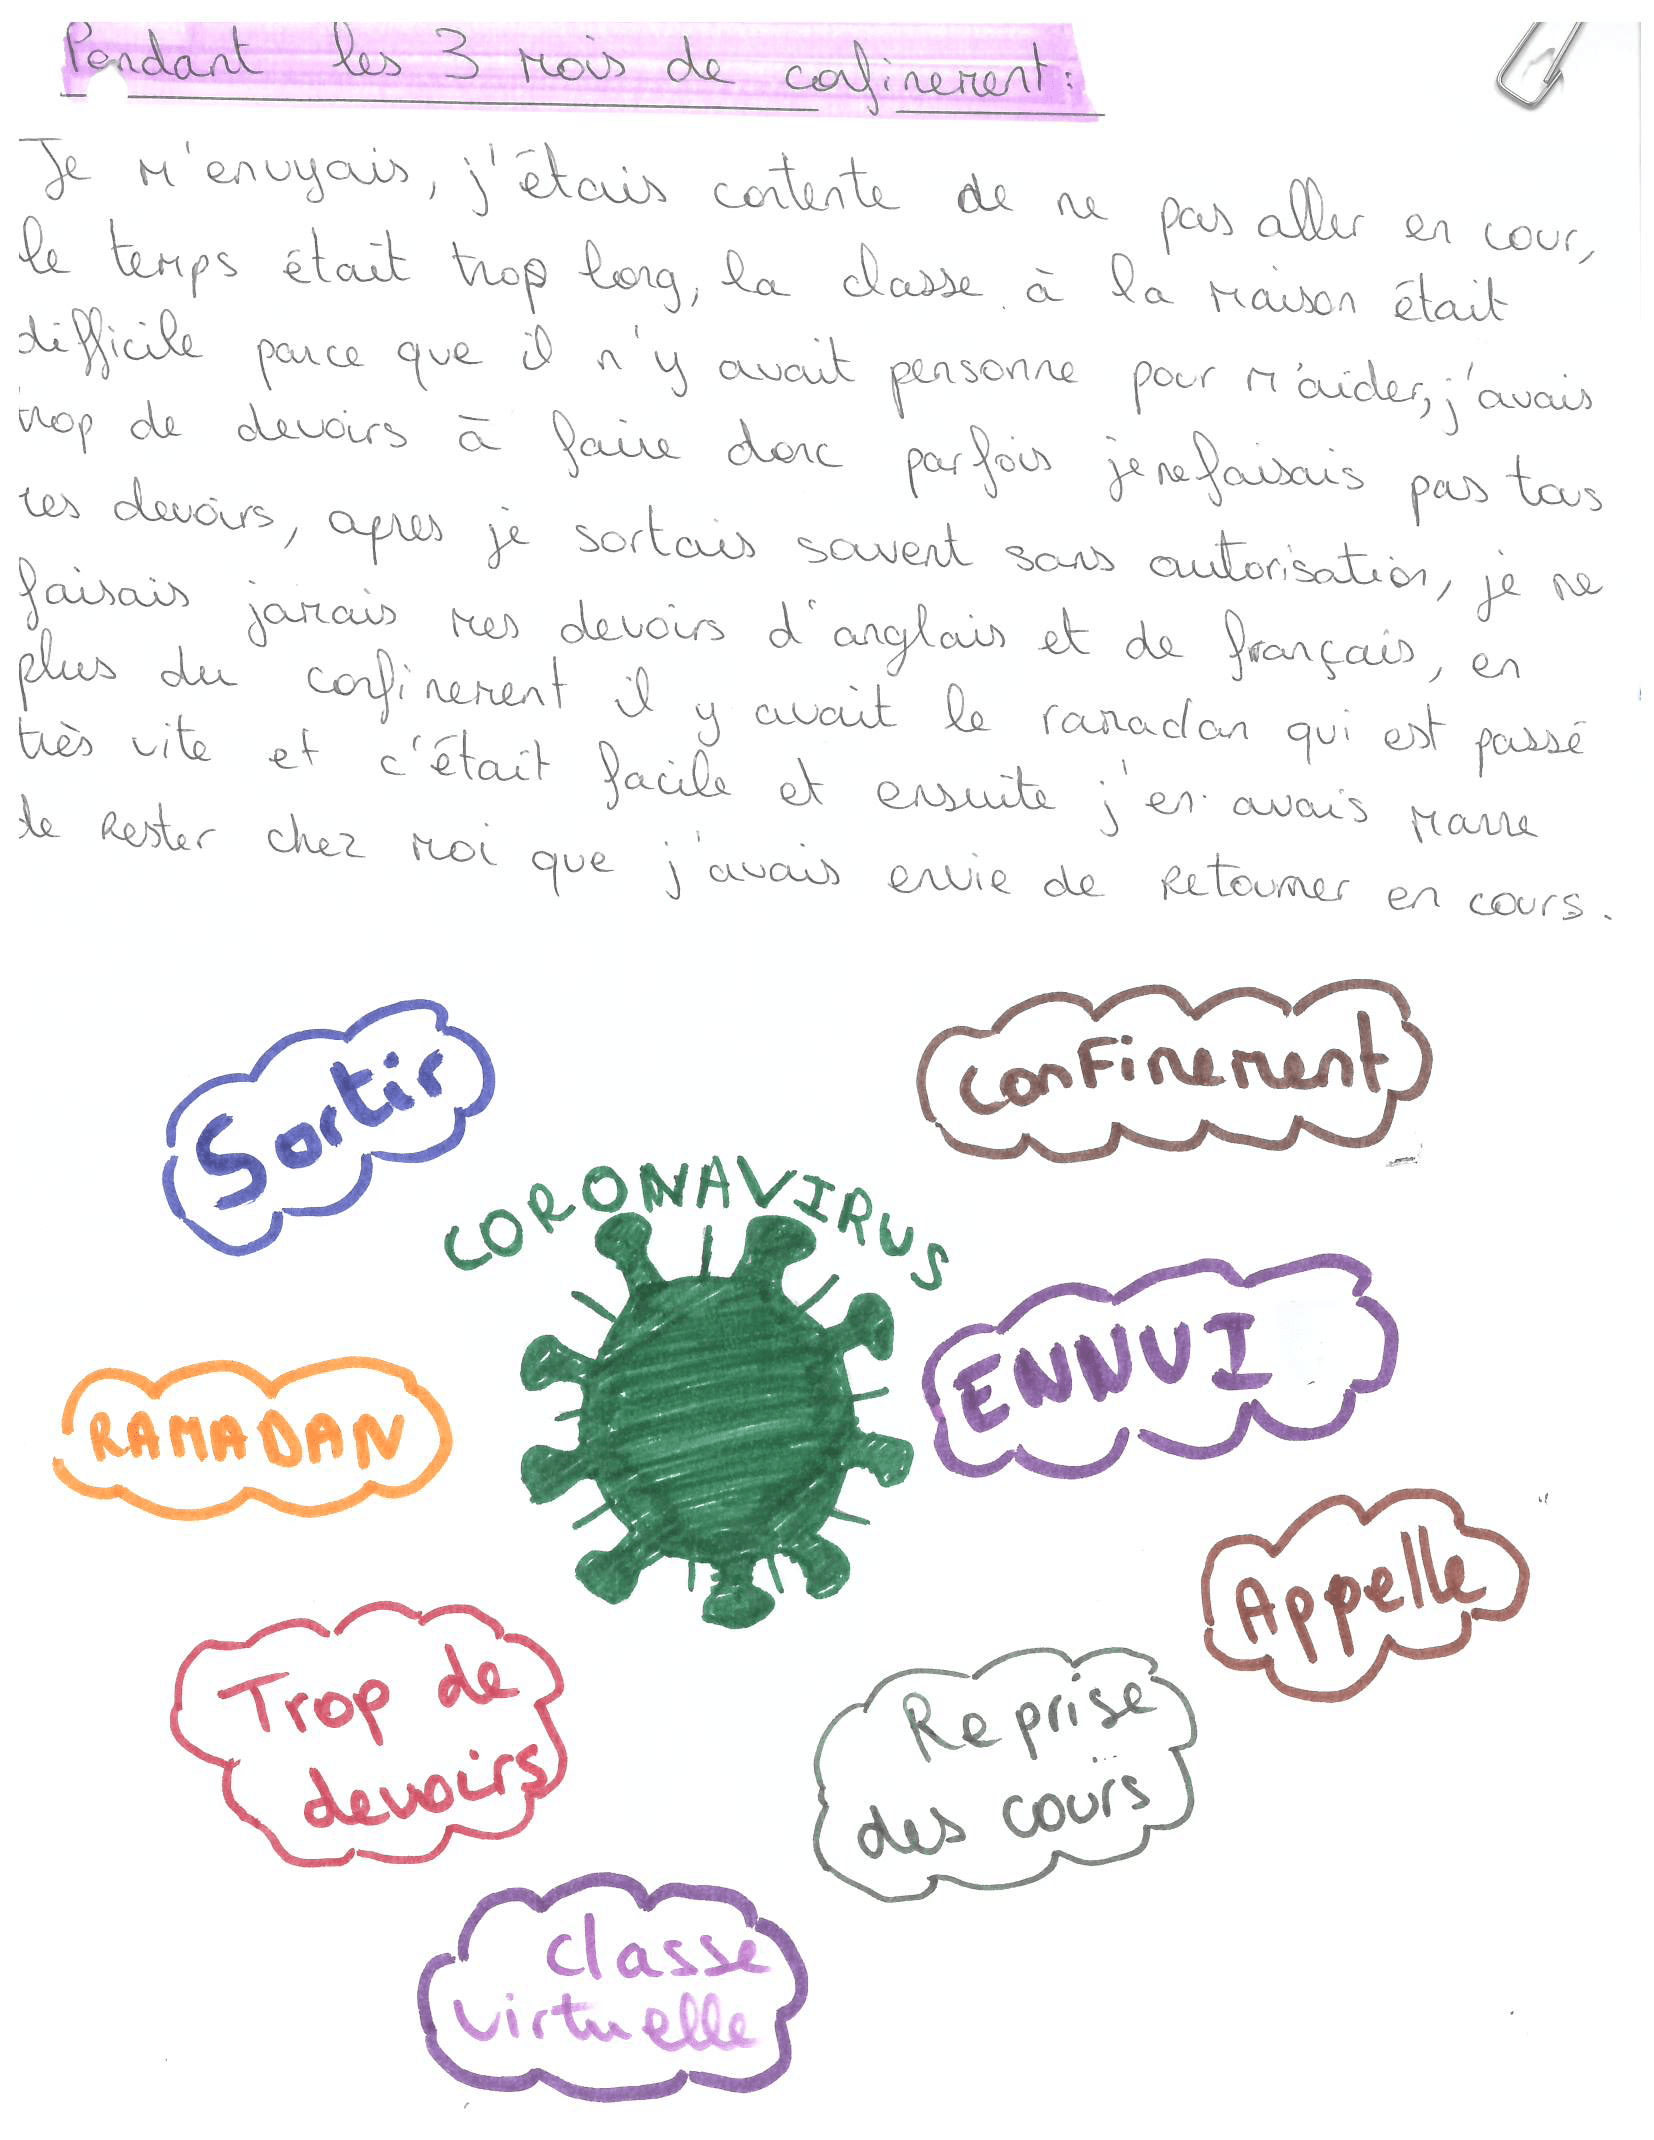 Pendant les 3 mois de confinement :
Je m'ennuyais, j'étais contente de ne pas aller en cour,
le temps était trop long, la classe à la maison était
difficile parce que il n'y avait personne pour m'aider, j'avais
trop de devoirs à faire donc parfois je ne faisais pas tous
mes devoirs, apres je sortais souvent sans autorisation, je ne
faisais jamais mes devoirs d'anglais et de français, en
plus du confinement il y avait le ramadan qui est passé
très vite et c'était facile et ensuite j'en avais marre
de Rester chez moi que j'avais envie de Retourner en cours.
Sortir
Confinement
CORONAVIRUS
ENNUI
RAMADAN
Appelle
Trop de
devoirs
Reprise
des cours
Classe
virtuelle